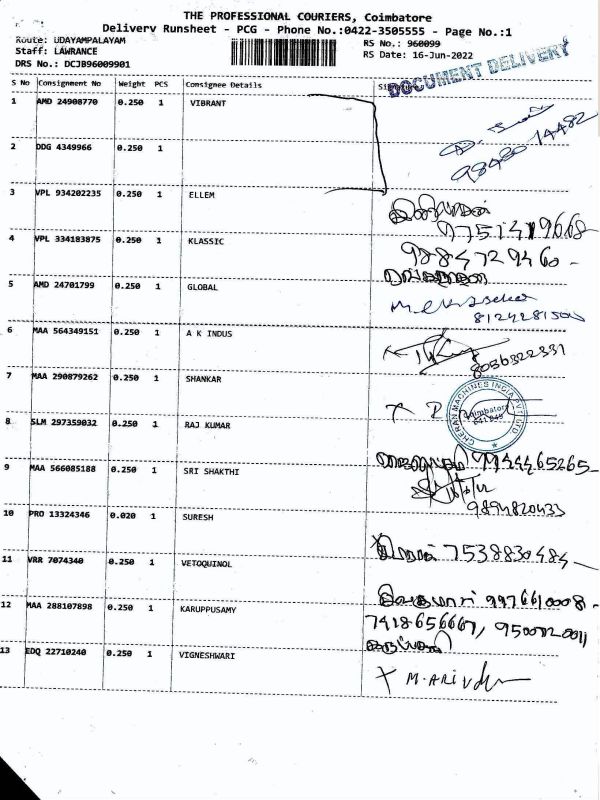 THE PROFESSIONAL COURIERS, Coimbatore
Delivery Runsheet - PCG - Phone No.:0422-3505555 - Page No.:1
Route: UDAYAMPALAYAM RS No.: 960099
Staff: LAWRANCE RS Date: 16-Jun-2022
DRS No.: DCJB96009901
DOCUMENT DELIVERY
S No Consignment No Weight PCS Consignee Details
1 AMD 24908770 0.250 1 VIBRANT
2 DDG 4349966 0.250 1
98420 74482
3 VPL 934202235 0.250 1 ELLEM
9751419668
4 VPL 334183875 0.250 1 KLASSIC
9884729460
5 AMD 24701799 0.250 1 GLOBAL
6 MAA 564349151 0.250 1 A K INDUS
8056322331
7 MAA 290879262 0.250 1 SHANKAR
CHERAN MACHINES INDIA PVT LTD
Coimbatore
8 SLM 297359032 0.250 1 RAJ KUMAR
9 MAA 566085188 0.250 1 SRI SHAKTHI
9894820433
10 PRO 13324346 0.020 1 SURESH
7538830484
11 VRR 7074340 0.250 1 VETOQUINOL
9976610008
12 MAA 288107898 0.250 1 KARUPPUSAMY
7418-656667,
13 EDQ 22710240 0.250 1 VIGNESHWARI